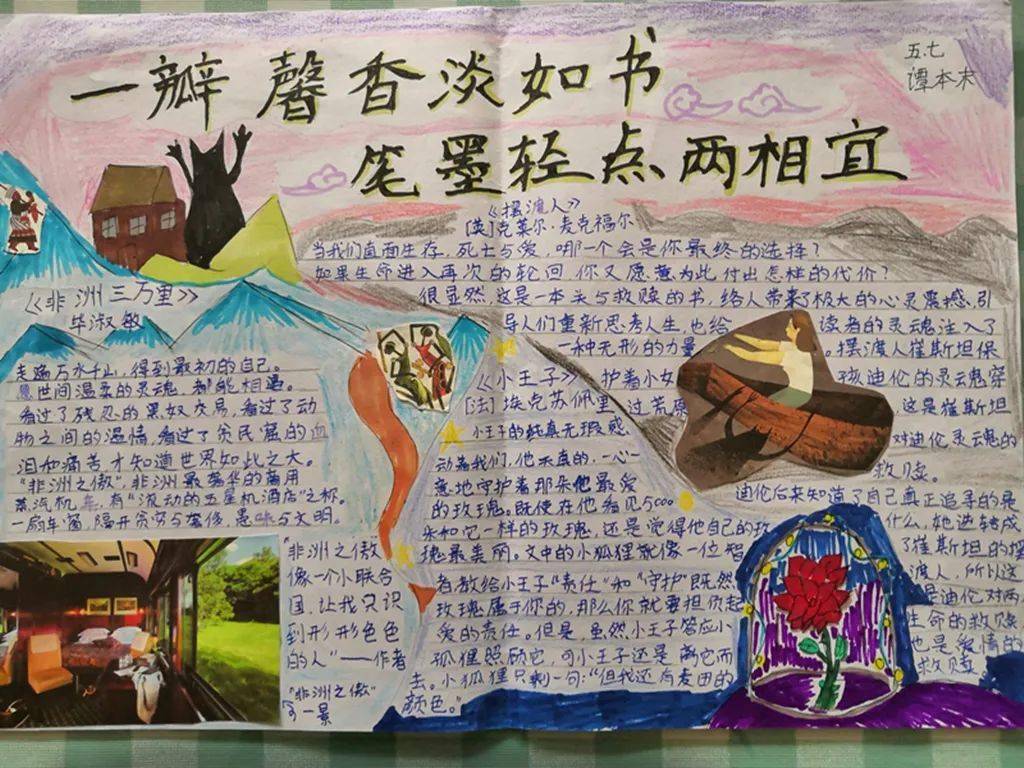 一瓣馨香淡如书
笔墨轻点两相宜
五.七
谭本末
《摆渡人》
[英]克莱尔·麦克福尔
当我们直面生存、死亡与爱，哪一个会是你最终的选择？
如果生命进入再次的轮回，你又愿意为此付出怎样的代价？
很显然，这是一本关与救赎的书，给人带来了极大的心灵震撼，引
导人们重新思考人生，也给读者的灵魂注入了
一种无形的力量。摆渡人崔斯坦保
护着小女孩迪伦的灵魂穿
过荒原，这是崔斯坦
对迪伦灵魂的
救赎。
迪伦后来知道了自己真正追寻的是
什么，她逆转成
了崔斯坦的摆
渡人，所以这
是迪伦对两
生命的救赎
也是爱情的
救赎。
《非洲三万里》
毕淑敏
走遍万水千山，得到最初的自己。
世间温柔的灵魂，都能相遇。
看过了残忍的黑奴交易，看过了动
物之间的温情，看过了贫民窟的血
泪和痛苦，才知道世界如此之大。
“非洲之傲”，非洲最奢华的商用
蒸汽机车，有“流动的五星机酒店”之称。
一扇车窗，隔开贫穷与奢侈，愚昧与文明。
“非洲之傲
像一个小联合
国，让我只识
到形形色色
的人”——作者
“非洲之傲”
一景
《小王子》
[法]埃克苏佩里
小王子的纯真无瑕感
动着我们，他天真的，一心一
意地守护着那朵他最爱
的玫瑰。既使在他看见5000
朵和它一样的玫瑰，还是觉得他自己的玫
瑰最美丽。文中的小狐狸就像一位智
者教给小王子“责任”和“守护”既然
玫瑰属于你的，那么你就要担负起
爱的责任。但是，虽然小王子答应小
狐狸照顾它，可小王子还是离它而
去。小狐狸只剩一句：“但我还有麦田的
颜色。”